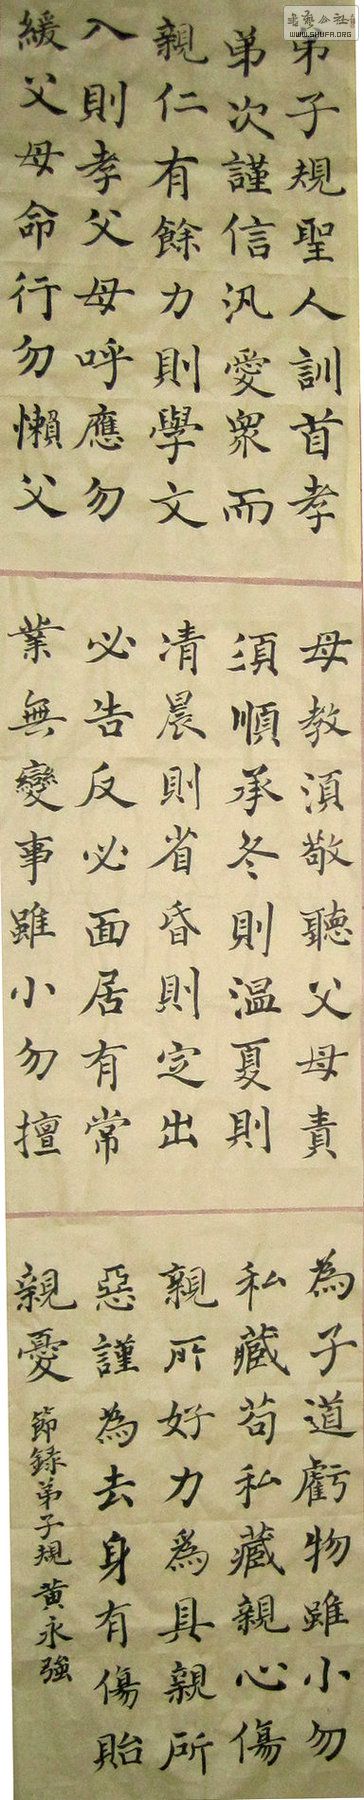 書藝公社
WWW.SHUFA.ORG
弟子規聖人訓首孝
弟次謹信汎愛眾而
親仁有餘力則學文
入則孝父母呼應勿
緩父母命行勿懶父
母教須敬聽父母責
須順承冬則温夏則
清晨則省昏則定出
必告反必面居有常
業無變事雖小勿擅
為子道虧物雖小勿
私藏苟私藏親心傷
親所好力爲具親所
惡謹為去身有傷貽
親憂
節録弟子規 黄永強